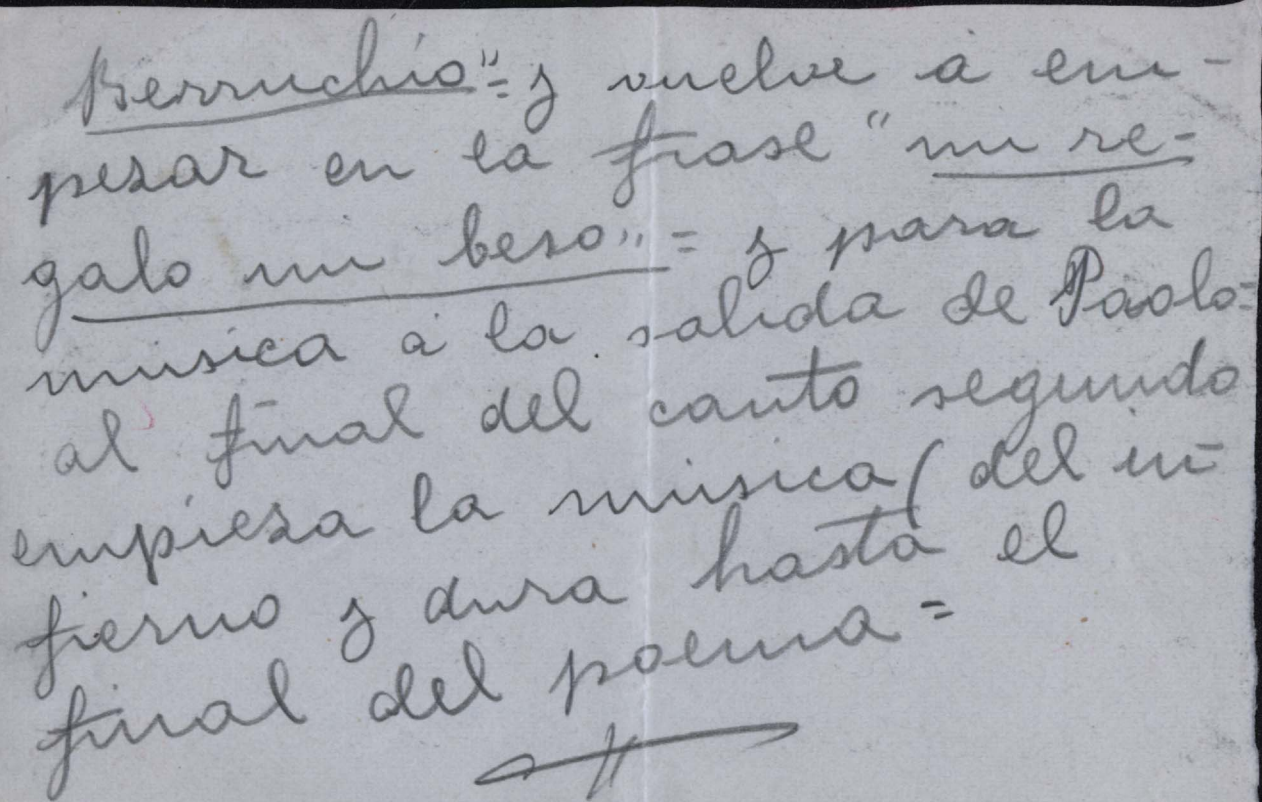 Berruchio" = y vuelve a em-
pezar en la frase "un re-
galo un beso" = y para la
musica á la salida de Paolo =
al final del canto segundo
empieza la música (del in-
fierno y dura hasta el
final del poema =